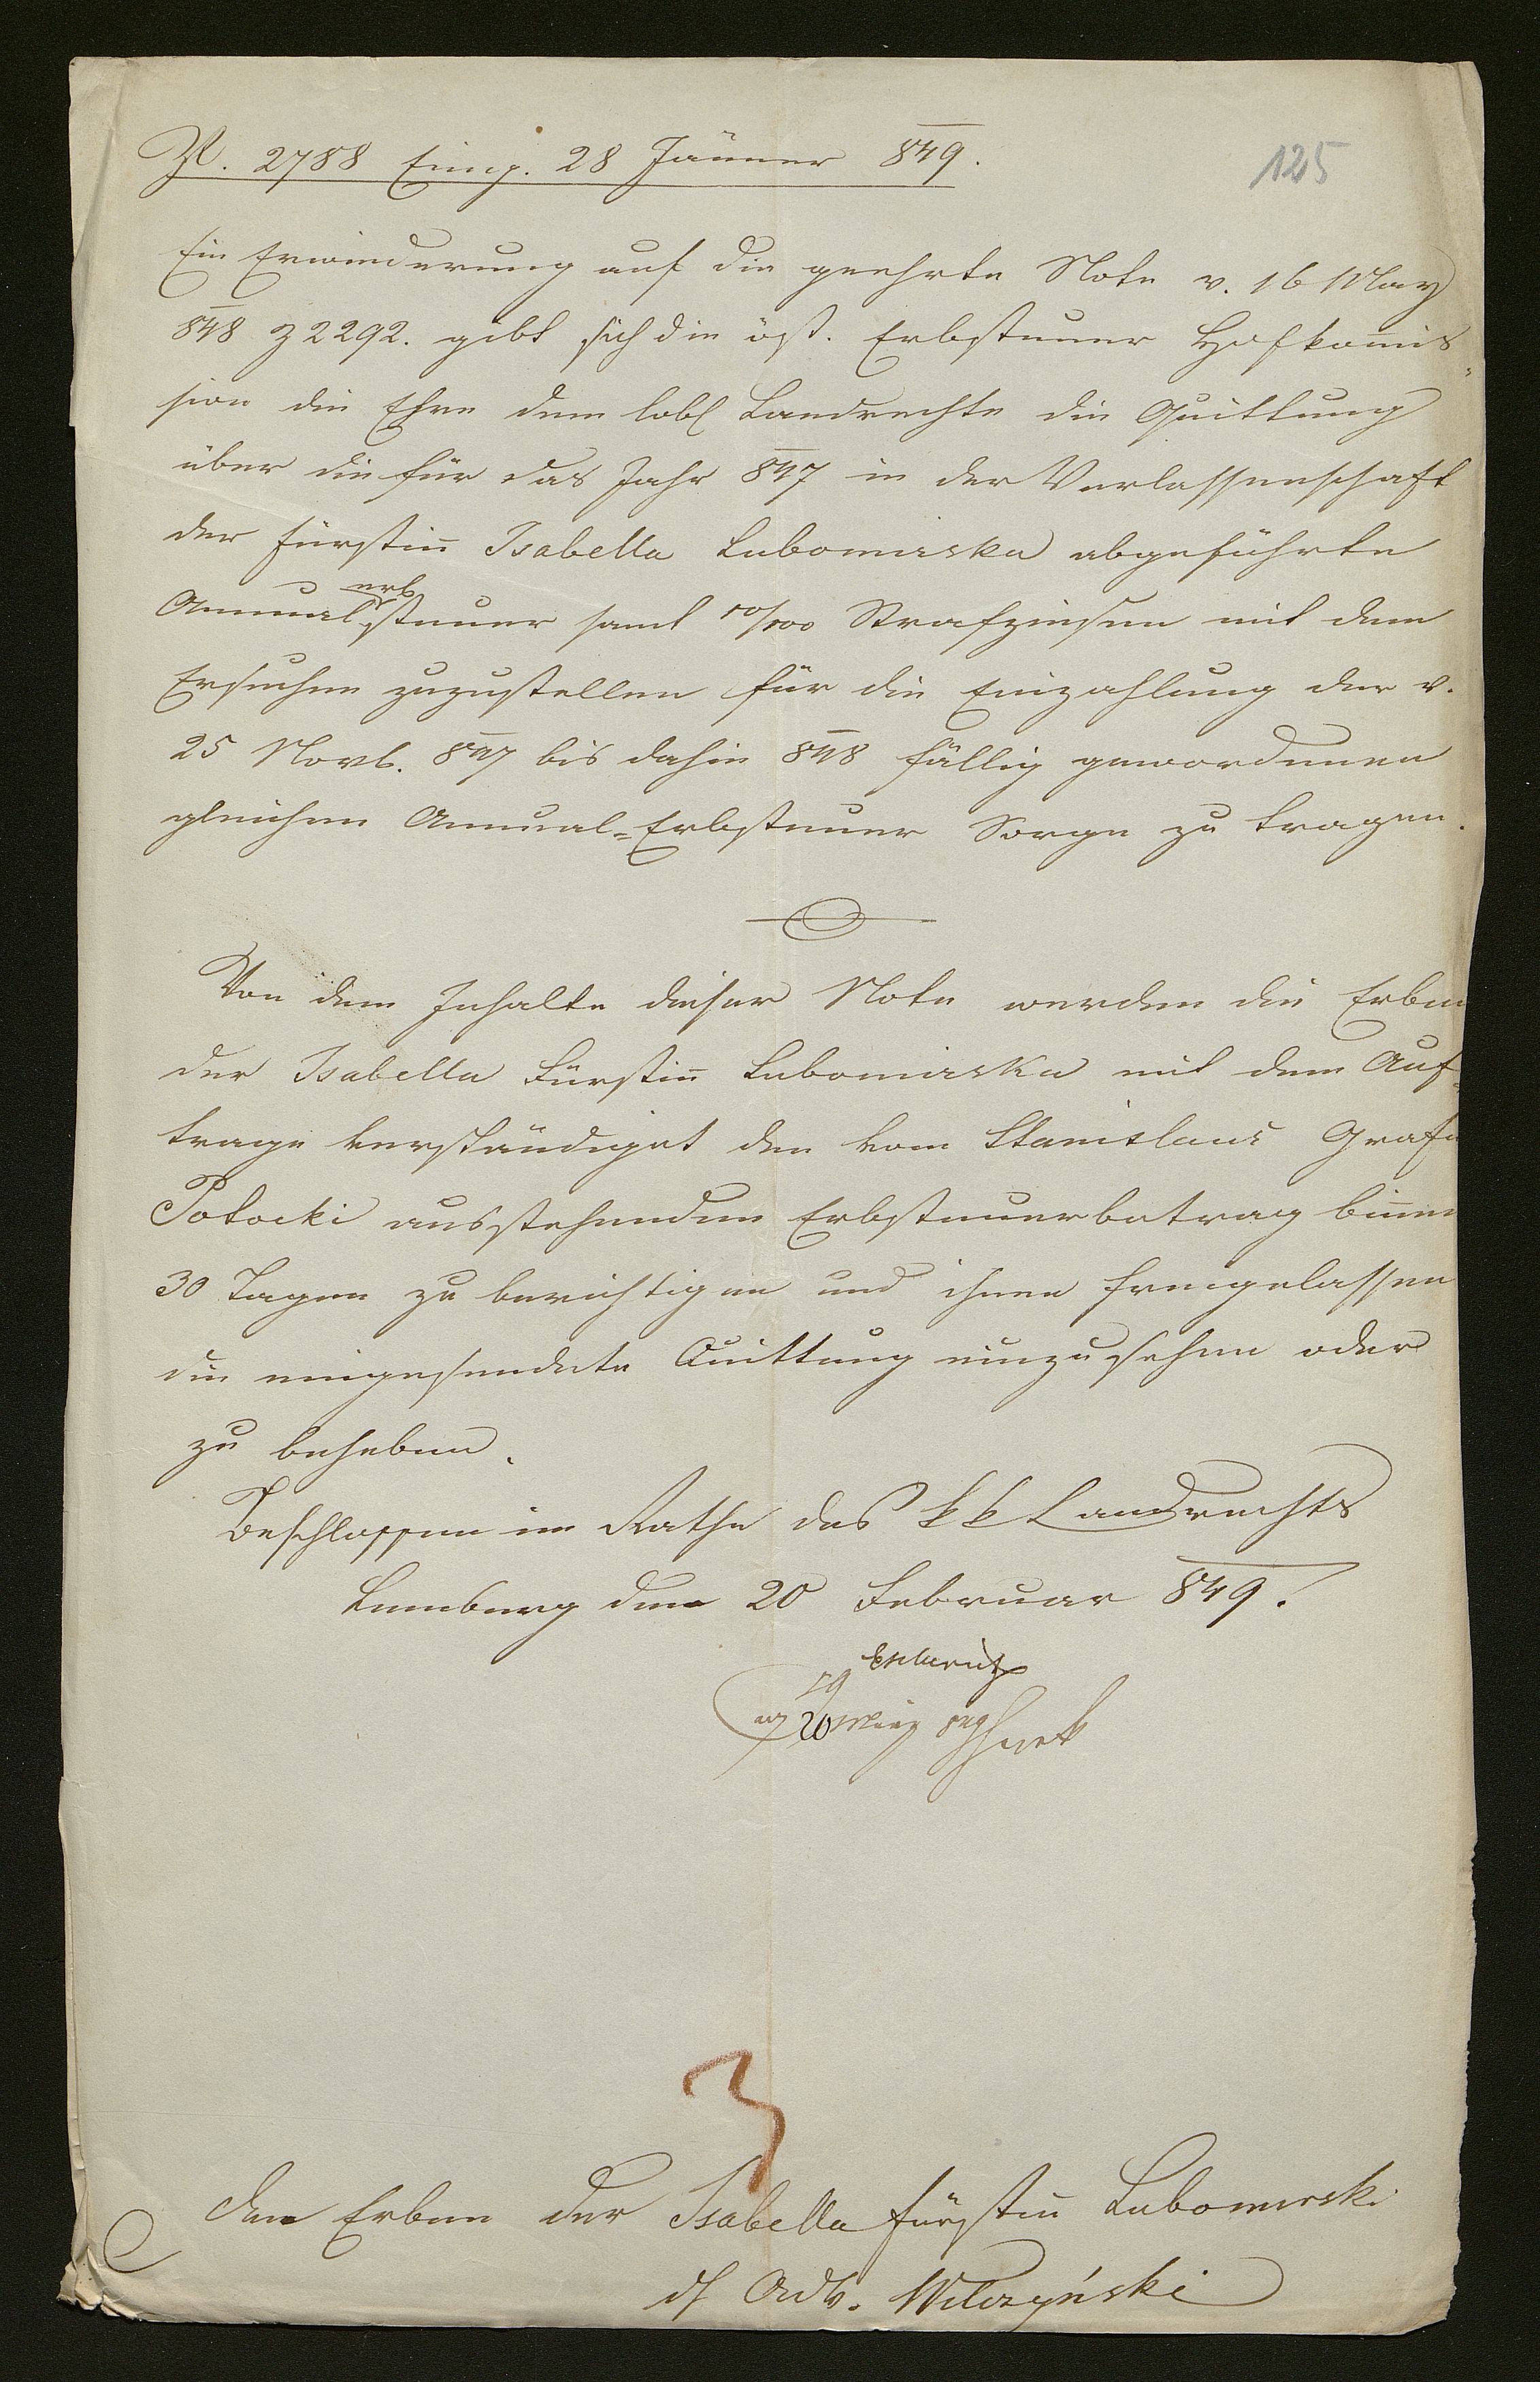 Zl. 2788 Eing. 28 Jänner 849.
125
Ein Erwiederung auf die geehrte Note v. 16 May
848 Z 2292. gibt sich die öst. Erbsteuer Hofkom̄is=
sion die Ehre dem löbl Landrechte die Quittung
über die für das Jahr 847 in der Verlassenschaft
der Fürstin̄ Isabella Lubomirska abgeführte
erb
Annualsteuer samt 10/100 Strafzinsen mit dem
Ersuchen zuzustellen für die Einzahlung der v.
25 Novb. 847 bis dahin 848 fällig gewordenen
gleichen Annual=Erbsteuer Sorge zu tragen.
Von dem Inhalte dieser Note werden die Erben
der Isabella Fürstin̄ Lubomirska mit dem Auf=
trage verständiget den vom Stanislaus Grafen
Potocki ausstehenden Erbsteuerbetrag bin̄en
30 Tagen zu berichtigen und ihnen freigelassen
die eingesendete Quittung einzusehen oder
zu beheben.
Beschlossen im Rathe des k k Landrechts
Lemberg den 20 Februar 849.
20 März 849
3
Den Erben der Isabella Fürstin̄ Lubomirski
Adv. Wilczyński